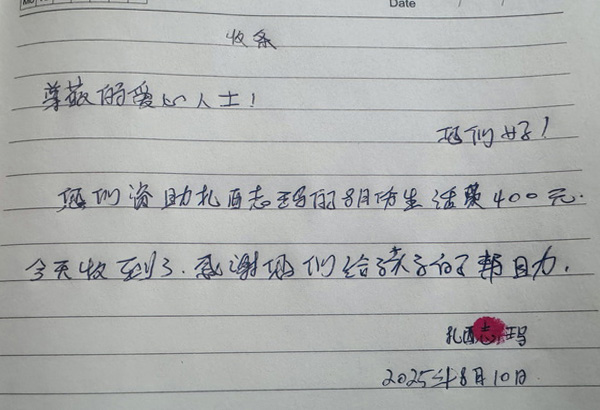 Date
收条
尊敬的爱心人士!
您们好!
您们资助扎西志玛的8月份生活费400元.
今天收到了.感谢您们给孩子的帮助.
扎西志玛
2025年8月10日